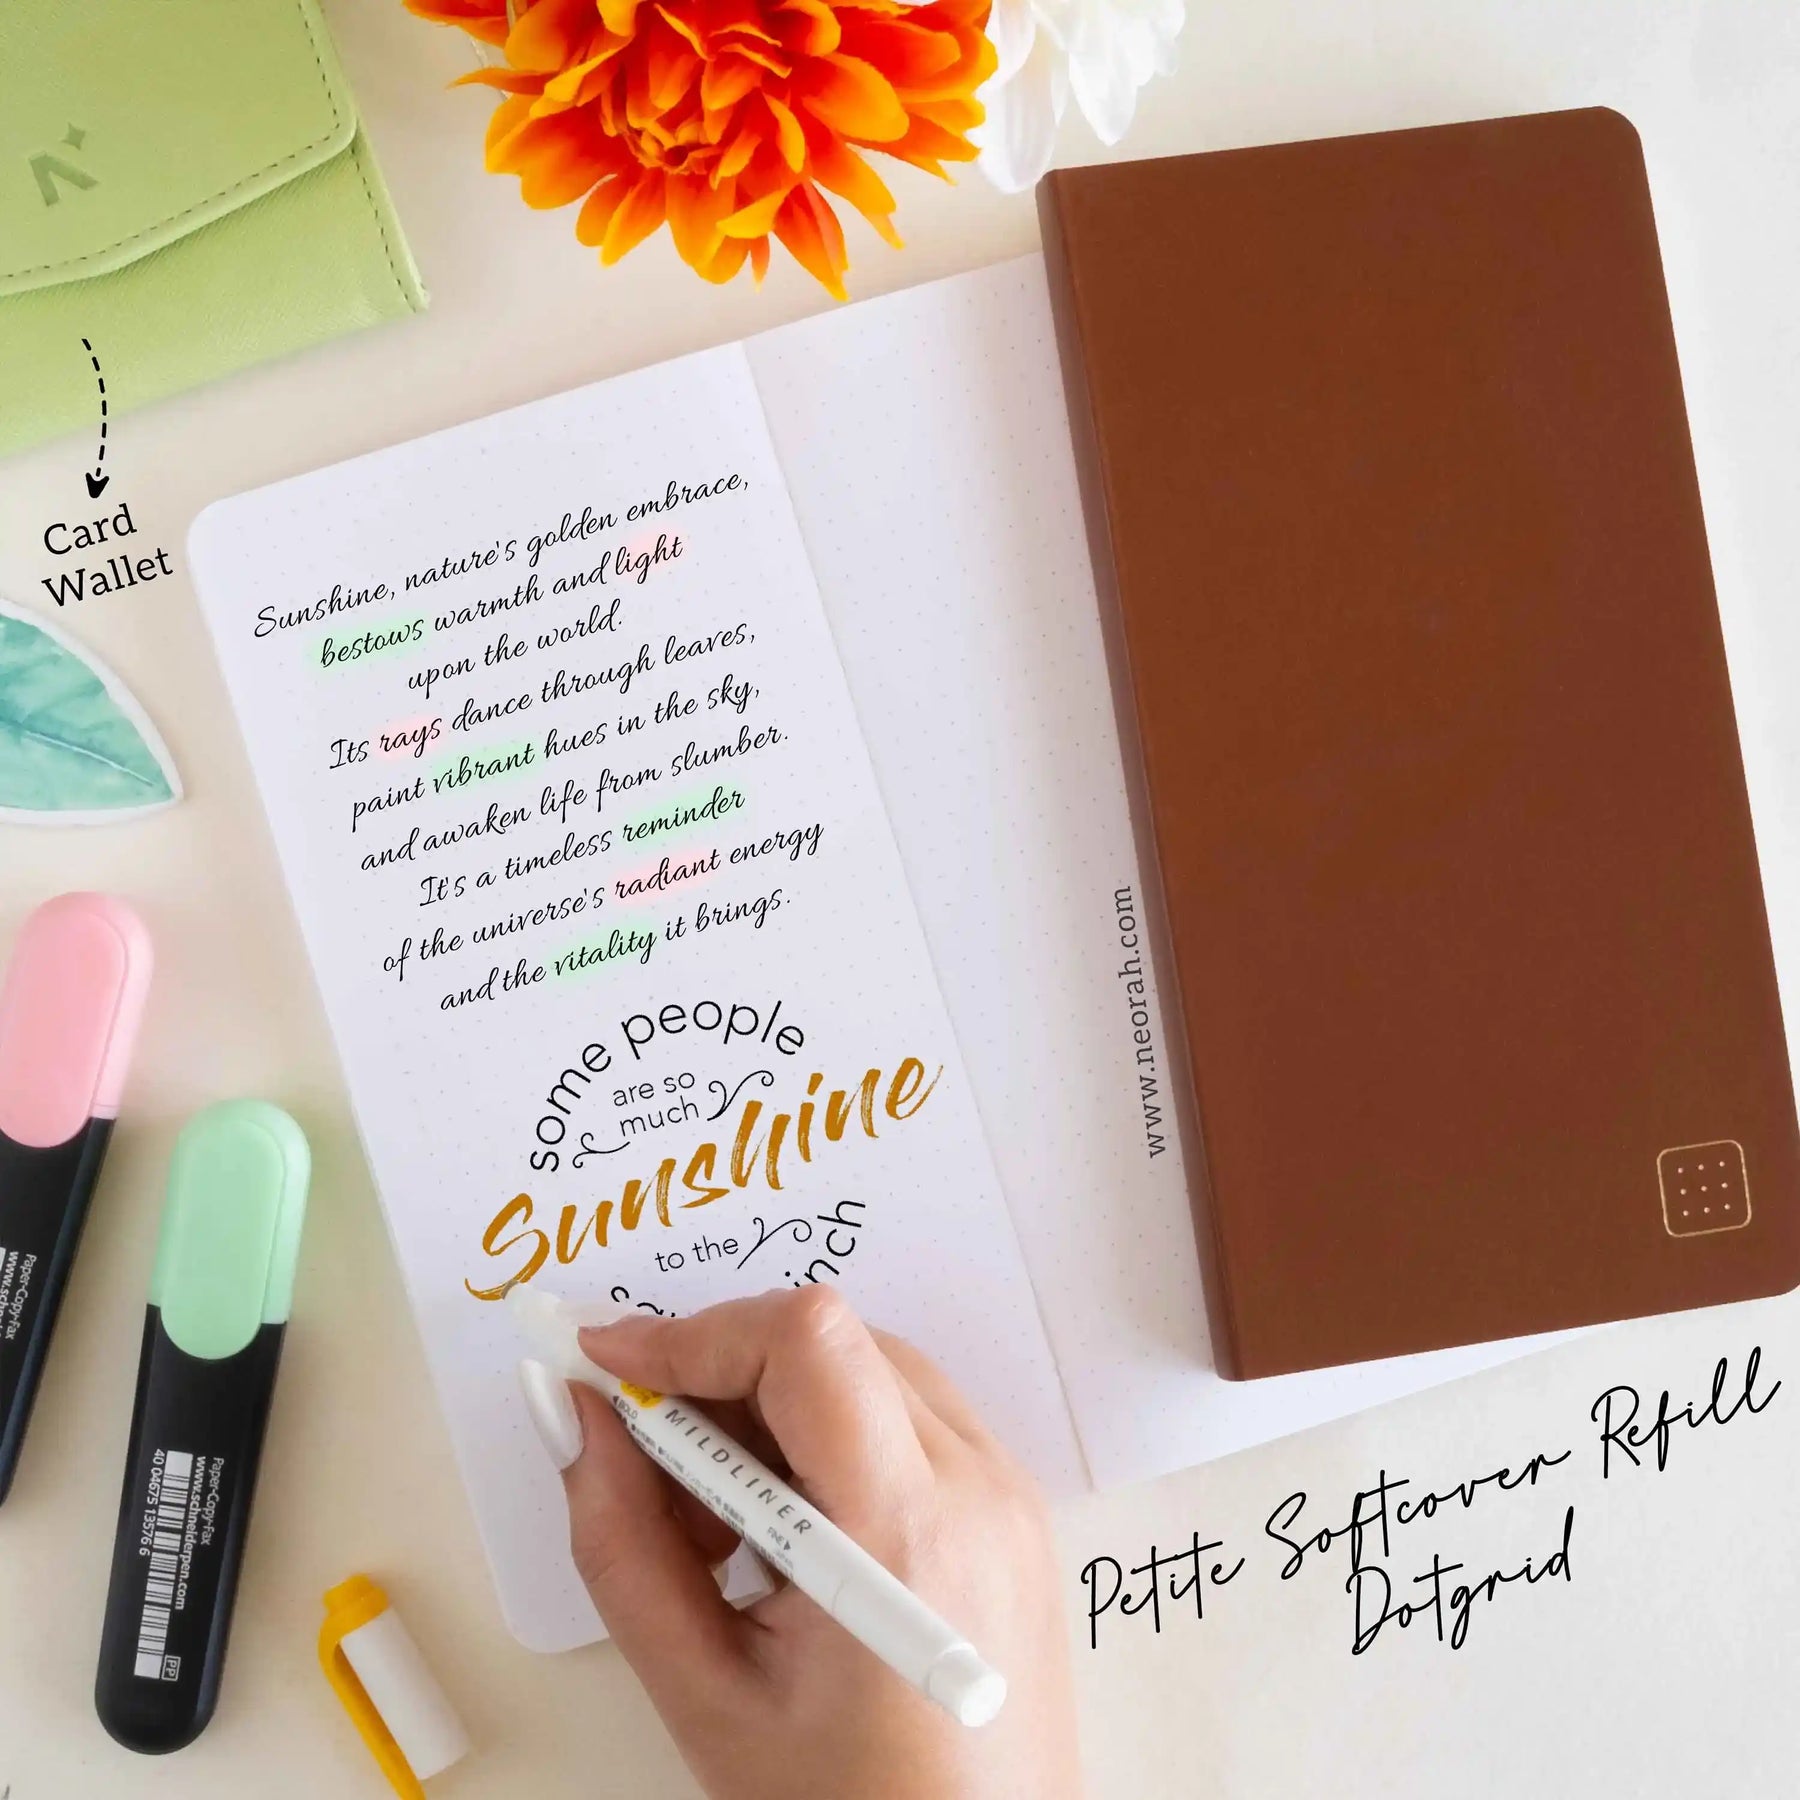 Card
Wallet
Sunshine, nature's golden embrace,
bestows warmth and light
upon the world.
Its rays dance through leaves,
paint vibrant hues in the sky,
and awaken life from slumber.
It's a timeless reminder
of the universe's radiant energy
and the vitality it brings.
some people
are so
much
Sunshine
to the
inch
MILDLINER
BOLD
FINE
www.neorah.com
Petite Softcover Refill
Dotgrid
Paper-Copy-Fax
www.schneiderpen.com
40 04675 13576 6
PP
Paper-Copy-Fax